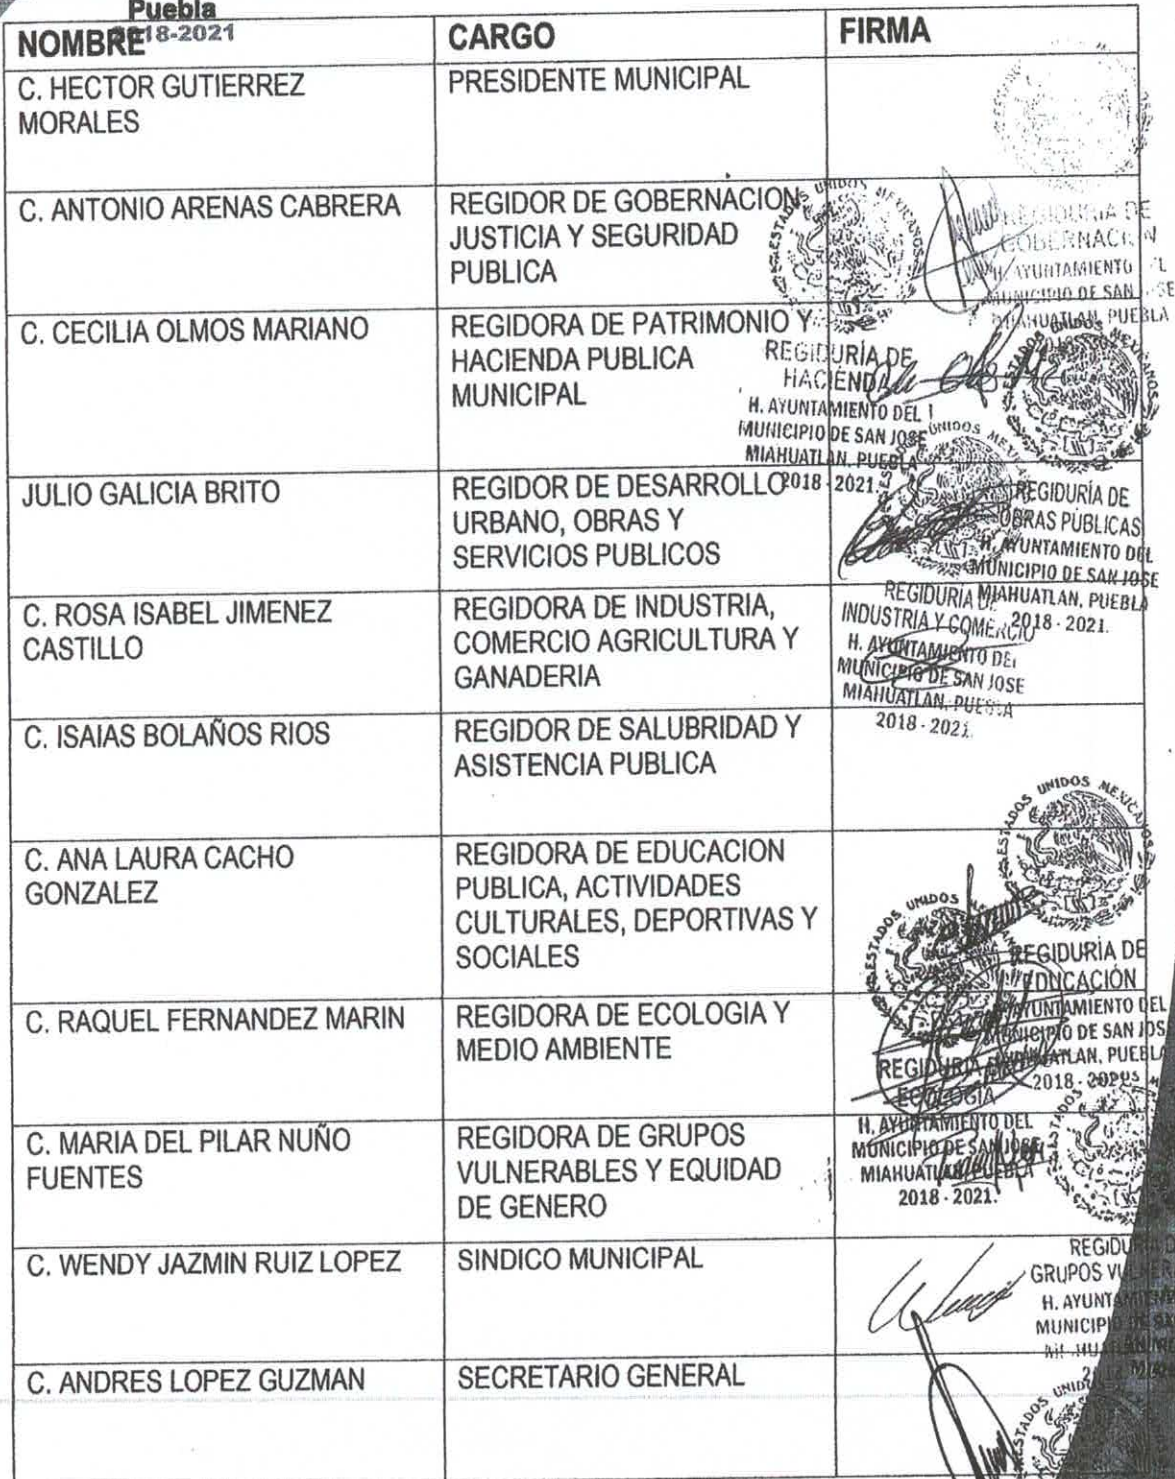 Puebla
2018-2021
NOMBRE CARGO FIRMA
C. HECTOR GUTIERREZ PRESIDENTE MUNICIPAL
MORALES
C. ANTONIO ARENAS CABRERA REGIDOR DE GOBERNACION
JUSTICIA Y SEGURIDAD
PUBLICA
ESTADOS UNIDOS MEXICANOS
REGIDURIA DE
GOBERNACION
H. AYUNTAMIENTO DEL
MUNICIPIO DE SAN JOSE
MIAHUATLAN, PUEBLA
C. CECILIA OLMOS MARIANO REGIDORA DE PATRIMONIO Y
HACIENDA PUBLICA
MUNICIPAL
REGIDURÍA DE
HACIENDA
H. AYUNTAMIENTO DEL
MUNICIPIO DE SAN JOSE
MIAHUATLAN, PUEBLA
2018 - 2021
ESTADOS UNIDOS MEXICANOS
JULIO GALICIA BRITO REGIDOR DE DESARROLLO
URBANO, OBRAS Y
SERVICIOS PUBLICOS
UNIDOS
REGIDURÍA DE
OBRAS PÚBLICAS
H. AYUNTAMIENTO DEL
MUNICIPIO DE SAN JOSE
MIAHUATLAN, PUEBLA
2018 - 2021.
C. ROSA ISABEL JIMENEZ REGIDORA DE INDUSTRIA,
CASTILLO COMERCIO AGRICULTURA Y
GANADERIA
REGIDURÍA DE
INDUSTRIA Y COMERCIO
H. AYUNTAMIENTO DEL
MUNICIPIO DE SAN JOSE
MIAHUATLAN, PUEBLA
2018 - 2021.
C. ISAIAS BOLAÑOS RIOS REGIDOR DE SALUBRIDAD Y
ASISTENCIA PUBLICA
ESTADOS UNIDOS MEXICANOS
C. ANA LAURA CACHO REGIDORA DE EDUCACION
GONZALEZ PUBLICA, ACTIVIDADES
CULTURALES, DEPORTIVAS Y
SOCIALES
ESTADOS UNIDOS
REGIDURÍA DE
EDUCACIÓN
AYUNTAMIENTO DEL
MUNICIPIO DE SAN JOS
MIAHUATLAN, PUEBLA
2018 - 2021
C. RAQUEL FERNANDEZ MARIN REGIDORA DE ECOLOGIA Y
MEDIO AMBIENTE
REGIDURÍA DE
ECOLOGÍA
H. AYUNTAMIENTO DEL
MUNICIPIO DE SAN JOSE
MIAHUATLAN, PUEBLA
2018 - 2021.
C. MARIA DEL PILAR NUÑO REGIDORA DE GRUPOS
FUENTES VULNERABLES Y EQUIDAD
DE GENERO
C. WENDY JAZMIN RUIZ LOPEZ SINDICO MUNICIPAL
GRUPOS
H. AYUNTAMIENTO
MUNICIPIO
C. ANDRES LOPEZ GUZMAN SECRETARIO GENERAL